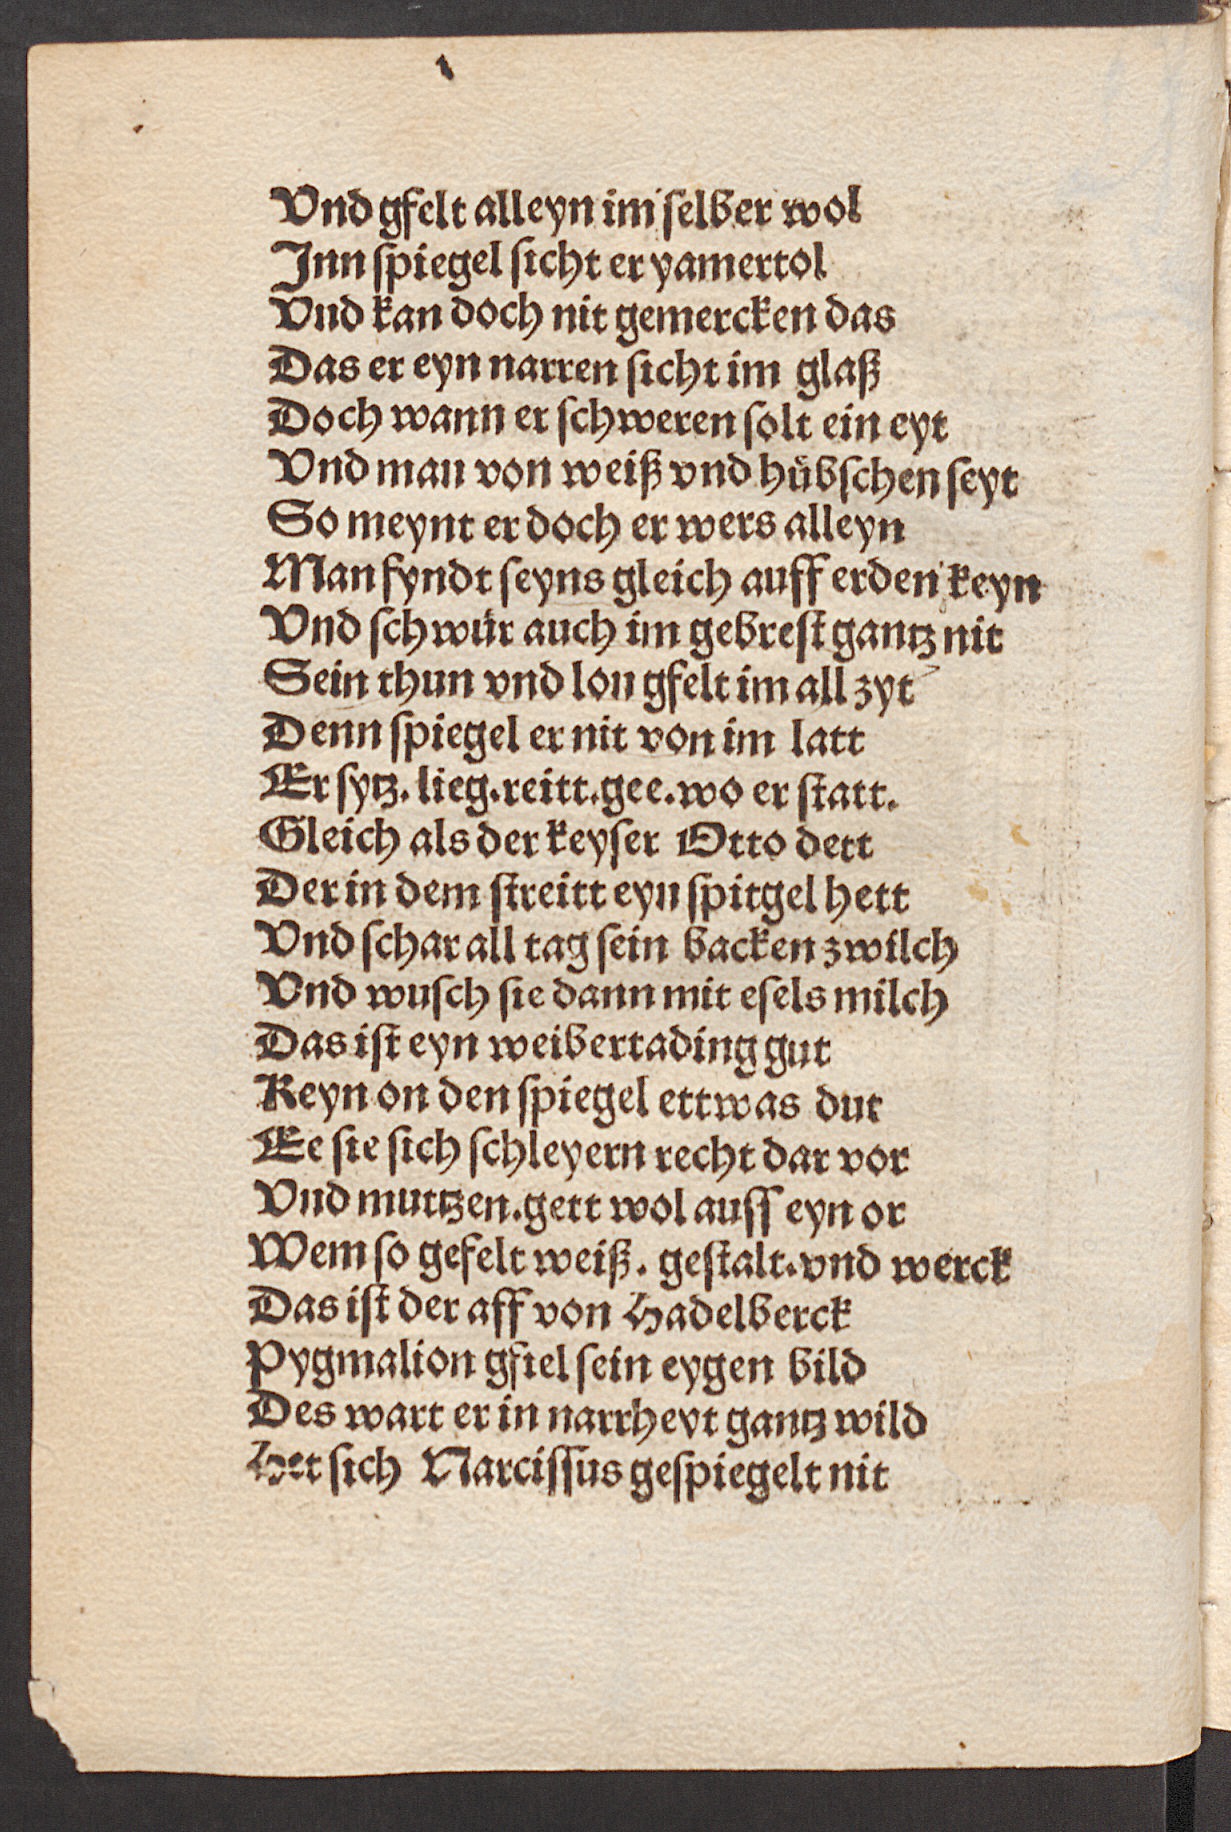 Vnd gfelt alleyn im ſelber wol
Jnn ſpiegel ſicht er yamertol
Vnd kan doch nit gemercken das
Das er eyn narren ſicht im glaß
Doch wann er ſchweren ſolt ein eyt
Vnd man von weiß vnd hübſchen ſeyt
So meynt er doch er wers alleyn
Man fyndt ſeyns gleich auff erden keyn
Vnd ſchwür auch im gebreſt gantz nit
Sein thun vnd lon gfelt im all zyt
Denn ſpiegel er nit von im latt
Er ſytz. lieg. reitt. gee. wo er ſtatt.
Gleich als der keyſer Otto dett
Der in dem ſtreitt eyn ſpitgel hett
Vnd ſchar all tag ſein backen zwilch
Vnd wuſch ſie dann mit eſels milch
Das iſt eyn weibertading gut
Keyn on den ſpiegel ettwas dut
Ee ſie ſich ſchleyern recht dar vor
Vnd muttzen. gett wol auſſ eyn or
Wem ſo gefelt weiß. geſtalt. vnd werck
Das iſt der aff von Hadelberck
Pygmalion gfiel ſein eygen bild
Des wart er in narrheyt gantz wild
Het ſich Narciſſus geſpiegelt nit